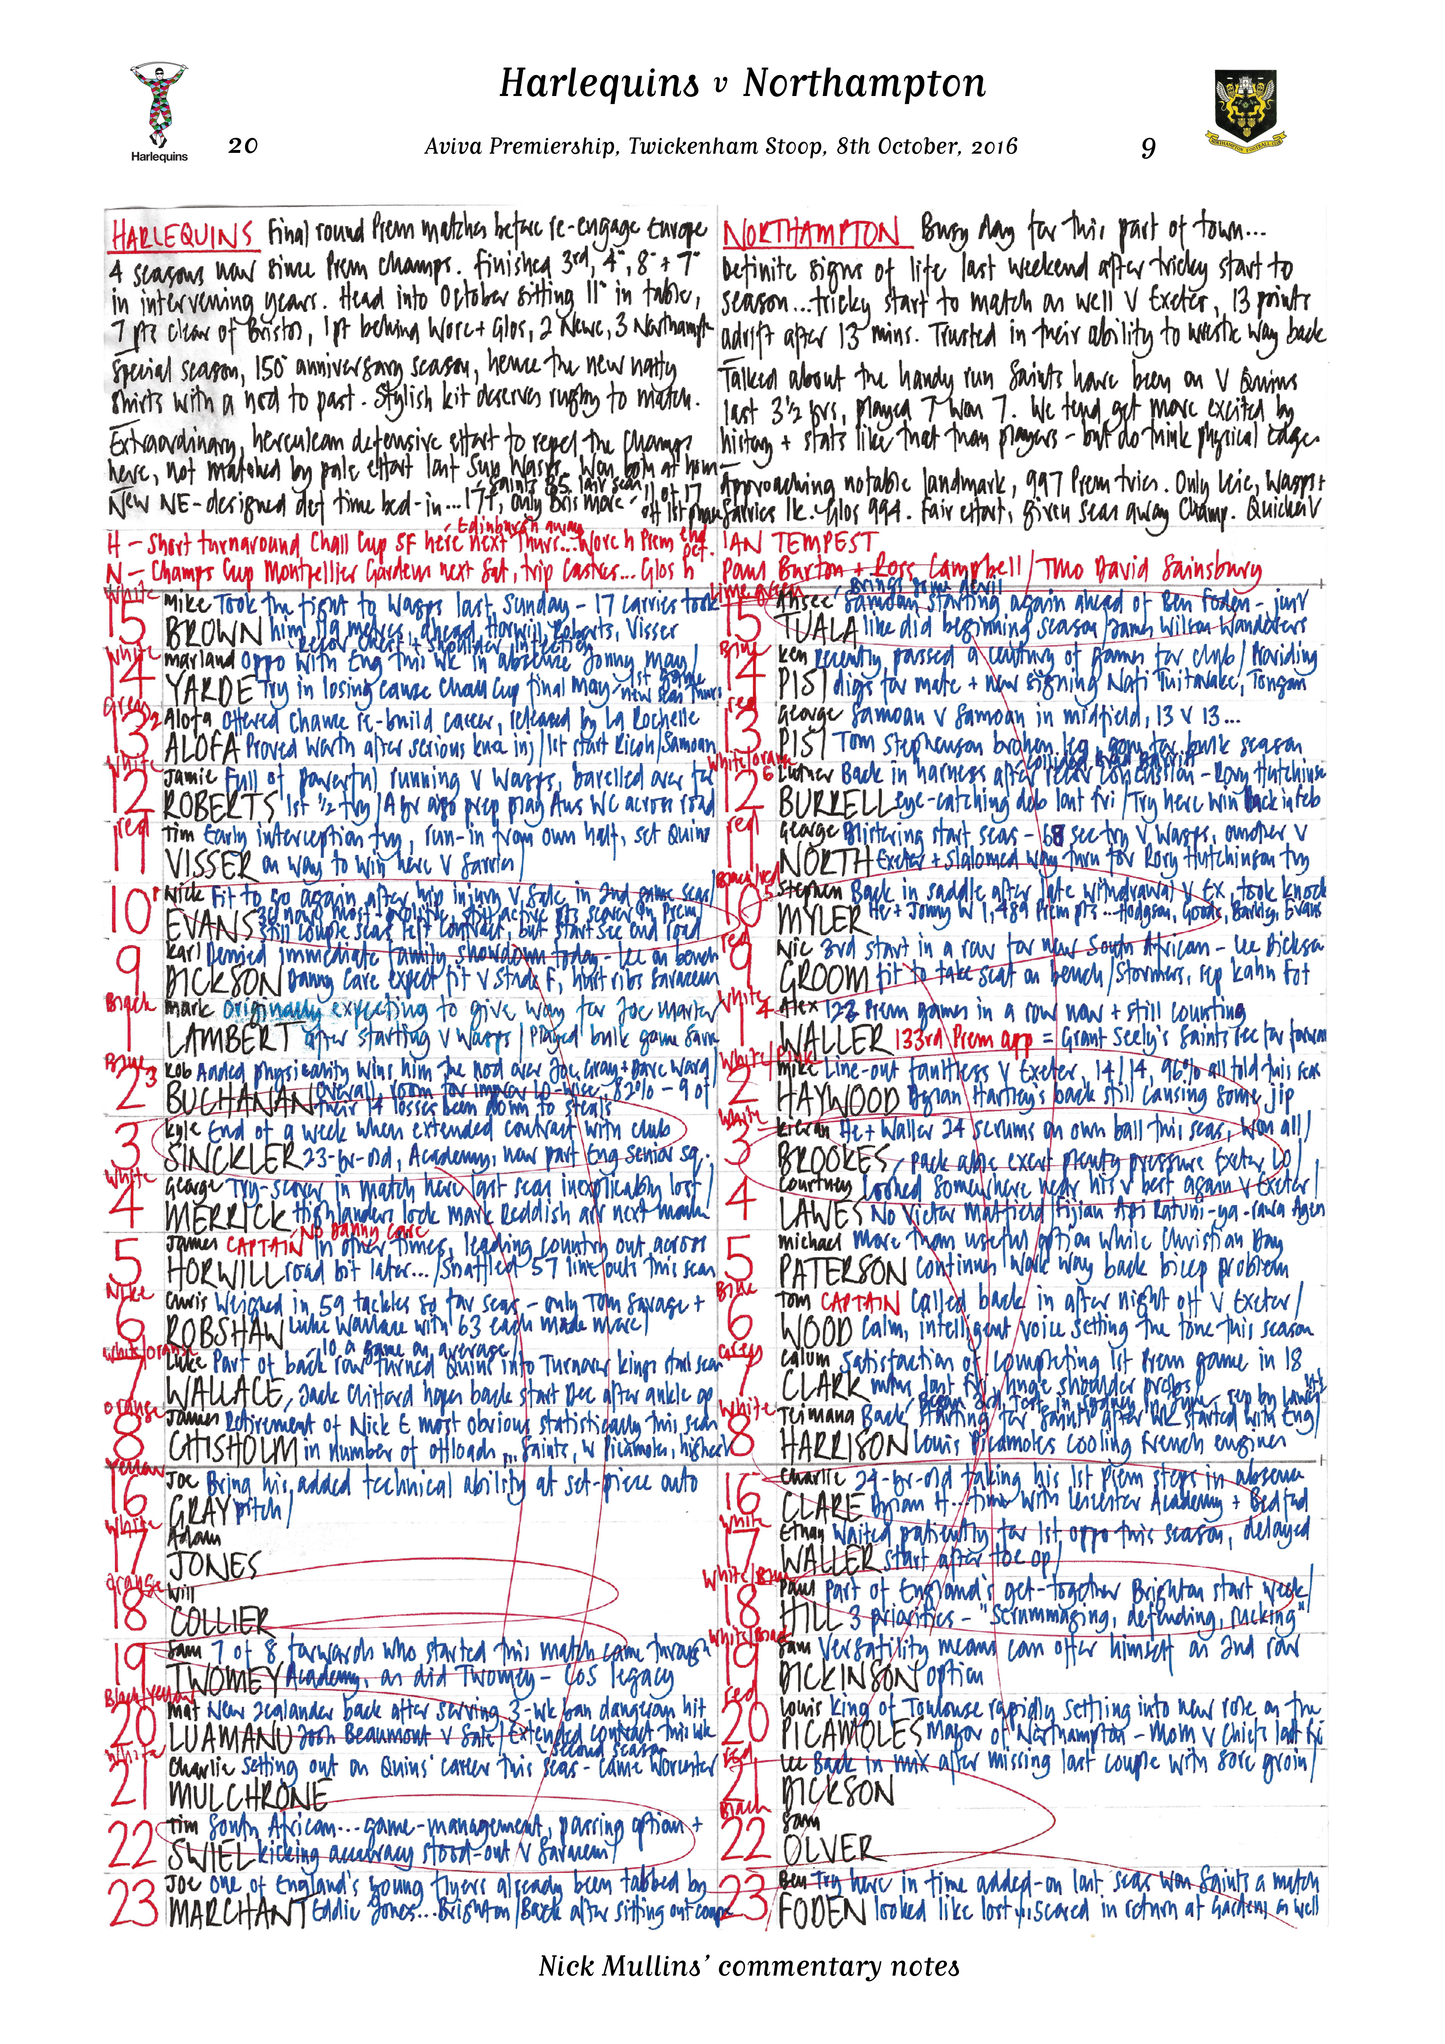 Harlequins v Northampton
Harlequins
20
Aviva Premiership, Twickenham Stoop, 8th October, 2016
9
HARLEQUINS Final round Prem matches before re-engage Europe
4 seasons now since Prem champs. Finished 3rd, 4th, 8th + 7th
in intervening years. Head into October sitting 11th in table,
7 pts clear of Bristol, 1pt behind Worc + Glos, 2 Newc, 3 Northampt
Special season, 150th anniversary season, hence the new natty
shirts with a nod to past. Stylish kit deserves rugby to match.
Extraordinary, herculean defensive effort to repel the champs
here, not matched by pale effort last Sun Wasps. Won both at home
Saints 85 last seas
New NE-designed def time bed-in... 17t, only Bris more 11 of 17
off 1st phase
Edinburgh away
H - Short turnaround Chall Cup SF here next Thurs... Worc h Prem end Oct.
N - Champs Cup Montpellier Gardens next Sat, trip Castres... Glos h
NORTHAMPTON Busy day for this part of town...
Definite signs of life last weekend after tricky start to
season... tricky start to match as well v Exeter, 13 points
adrift after 13 mins. Trusted in their ability to wrestle way back
Talked about the handy run Saints have been on v Quins
last 3½ yrs, played 7 won 7. We tend get more excited by
history + stats like that than players - but do think physical edge
Approaching notable landmark, 997 Prem tries. Only Leic, Wasps +
Sarries 1k. Glos 994. Fair effort, given seas away Champ. Quicker v
IAN TEMPEST
Paul Burton + Ross Campbell / TMO David Sainsbury
White
15 Mike BROWN Took the fight to Wasps last Sunday - 17 carries took
him 119 metres, ahead Horwill, Roberts, Visser
Recov chest + shoulder infection
White
14 Marland YARDE Oppo with Eng this wk in absence Jonny May /
Try in losing cause Chall Cup final May / 1st game
new seas Thurs
Green
13 2 Alofa ALOFA Offered chance re-build career, released by La Rochelle
Proved worth after serious knee inj / 1st start Ricoh / Samoan
White
12 Jamie ROBERTS Full of powerful running v Wasps, barelled over for
1st ½ try / A yr ago prep play Aus WC across road
red
11 Tim VISSER Early interception try, run-in from own half, set Quins
on way to win here v Sarries /
10 Nick EVANS Fit to go again after hip injury v Sale in 2nd game seas /
still couple seas left contract, but start see end road
9 Karl DICKSON Denied immediate family showdown today - Lee on bench
Danny Care expect fit v Stade F, hurt ribs Saracens
Black
1 Mark LAMBERT Originally expecting to give way for Joe Marler
after starting v Wasps / Played bulk game Sara
Blue
2 3 Rob BUCHANAN Added physicality wins him the nod over Joe Gray + Dave Ward /
Overall, room for improv LO-wise, 82% - 9 of
their 14 losses been down to steals
3 Kyle SINCKLER End of a week when extended contract with club
23-yr-old, Academy, now part Eng senior sq.
White
4 George MERRICK Try-scorer in match here last seas inexplicably lost /
Highlanders lock Mark Reddish arr next month
No Danny Care
5 James HORWILL CAPTAIN In other times, leading country out across
road bit later... / Snaffled 57 line outs this seas
Nike
6 Chris ROBSHAW Weighed in 59 tackles so far seas - only Tom Savage +
Luke Wallace with 63 each made more /
White/orange
10 a game on average /
7 Luke WALLACE Part of back row turned Quins into Turnover Kings start seas
Jack Clifford hopes back start Dec after ankle op
orange
8 James CHISHOLM Retirement of Nick E most obvious statistically this seas
in number of offloads... Saints, w Picamoles, highest
Yellow
16 Joe GRAY Bring his added technical ability at set-piece onto
pitch /
White
17 Adam JONES
orange
18 Will COLLIER
19 Sam TWOMEY 7 of 8 forwards who started this match came through
Academy, as did Twomey - CoS legacy
Black/Yellow
20 Mat LUAMANU New Zealander back after serving 3-wk ban dangerous hit
Josh Beaumont v Sale / Extended contract this wk
White
second season
21 Charlie MULCHRONE Setting out on Quins' career this seas - came Worcester
22 Tim SWIEL South African... game-management, passing option +
kicking accuracy stood-out v Saracens /
23 Joe MARCHANT One of England's young flyers already been tabbed by
Eddie Jones... Brighton / Back after sitting out coupe
Lime green
Brings some devil
15 Ahsee TUALA Samoan starting again ahead of Ben Foden - just
like did beginning season / James Wilson Wanderers
Blue
14 Ken PISI Recently passed a century of games for club / Providing
digs for mate + new signing Nafi Tuitavake, Tongan
red
13 George PISI Samoan v Samoan in midfield, 13 v 13...
Tom Stephenson broken leg, gone for bulk season
White/orange
12 6 Luther BURRELL Back in harness after recov concussion - Rory Hutchinson
eye-catching deb last Fri / Try here win back in Feb
red
11 George NORTH Blistering start seas - 68 sec try v Wasps, another v
Exeter + slalomed way thru for Rory Hutchinson try
Black/red
10 5 Stephen MYLER Back in saddle after late withdrawal v Ex, took knock
He + Jonny W 1,489 Prem pts... Hodgson, Goode, Barkley, Evans
red
9 Nic GROOM 3rd start in a row for new South African - Lee Dickson
fit to take seat on bench / Stormers, rep Kahn Fot
White
1 4 Alex WALLER 122 Prem games in a row now + still counting
133rd Prem app = Grant Seely's Saints rec for forward
White/Pink
2 Mike HAYWOOD Line-out faultless v Exeter, 14/14, 96% all told this seas
Dylan Hartley's back still causing some jip
White
3 Kieran BROOKES He + Waller 24 scrums on own ball this seas, won all /
Pack able exert plenty pressure Exeter LO /
4 Courtney LAWES Looked somewhere near his v best again v Exeter /
No Victor Matfield Fijian Api Ratuni-ya-rawa Agen
5 Michael PATERSON More than useful option while Christian Day
continues work way back bicep problem
Blue
6 Tom WOOD CAPTAIN Called back in after night off v Exeter /
Calm, intelligent voice setting the tone this season
Green
7 Calum CLARK Satisfaction of completing 1st Prem game in 18
mths last Fri, huge shoulder probs
White
8 Teimana HARRISON Back starting for Saints after wk started with Eng /
Louis Picamoles cooling French engines
16 Charlie CLARE 24-yr-old taking his 1st Prem steps in absence
Dylan H... time with Leicester Academy + Bedford
White
17 Ethan WALLER Waited patiently for 1st oppo this season, delayed
start after toe op /
White/Blue
18 Paul HILL Part of England's get-together Brighton start week /
3 priorities - "Scrummaging, defending, rucking"
White/Black
19 Sam DICKINSON Versatility means can offer himself as 2nd row
option
red
20 Louis PICAMOLES King of Toulouse rapidly settling into new role as the
Mayor of Northampton - MoM v Chiefs last Fri
red
21 Lee DICKSON Back in mix after missing last couple with sore groin /
Black
22 Sam OLVER
23 Ben FODEN Try here in time added-on last seas won Saints a match
looked like lost / Scored in return at Gardens as well
Nick Mullins' commentary notes